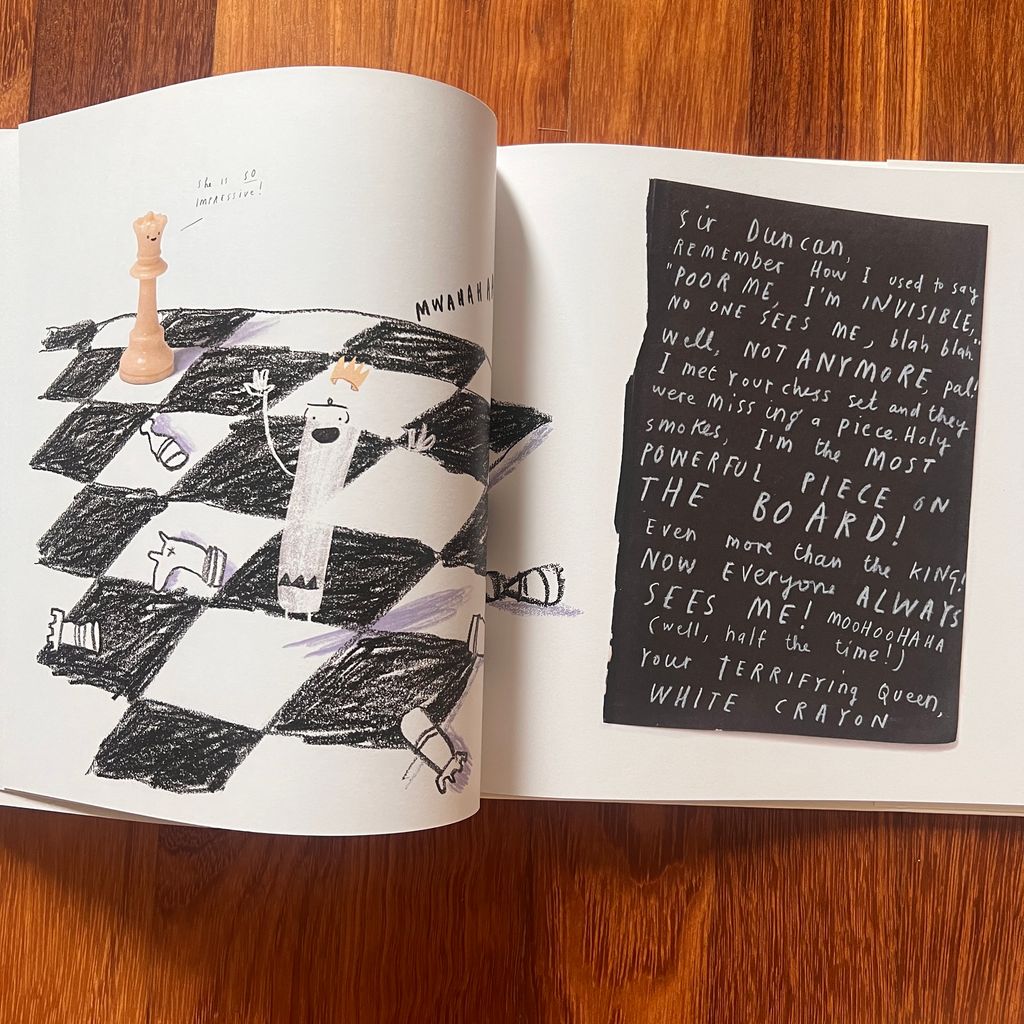 She is SO
IMPRESSIVE!
MWAHAHAH
Sir Duncan,
REMEMBER HOW I used to say
"POOR ME, I'M INVISIBLE,
NO ONE SEES ME, blah blah."
Well, NOT ANYMORE, pal!
I met your chess set and they
were missing a piece. Holy
smokes, I'm the MOST
POWERFUL PIECE ON
THE BOARD!
Even more than the KING!
NOW EVERYONE ALWAYS
SEES ME! MOOHOOHAHA
(well, half the time!)
Your TERRIFYING Queen,
WHITE CRAYON